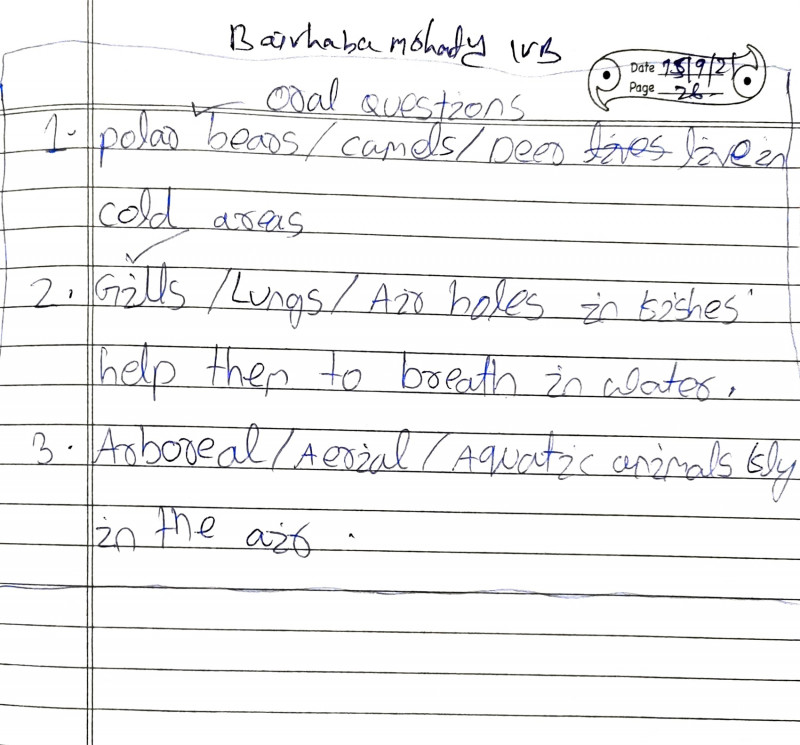 Bairhaba mohady IVB
Date 15/9/21
Page 26
Oral questions
1- polar bears/camels/Deer lives live in
cold areas
2. Gills/Lungs/Air holes in fishes
help them to breath in water.
3. Arboreal/Aerial/Aquatic animals fly
in the air.